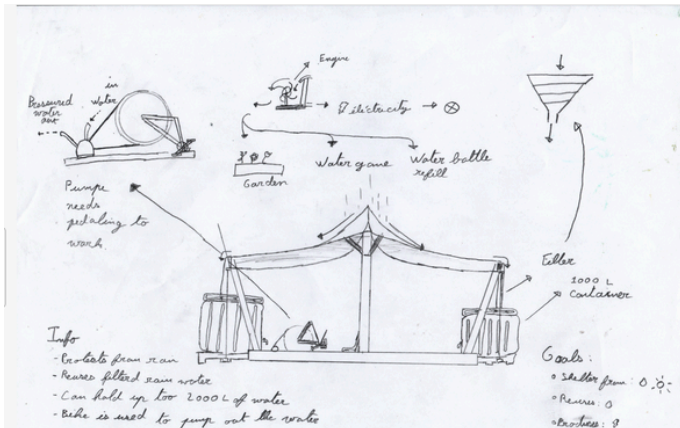 Engine
Pressured
water
out
in
water
electricity
Water game
Water bottle
refill
Garden
Pumpe
needs
pedaling to
work.
Filter
1000 L
Container
Info
- Protects from ran
- Reuses filtered rain water
- Can hold up too 2000 L of water
- Bike is used to pump out the water
Goals:
• Shelter from:
• Reuses:
• Produces: